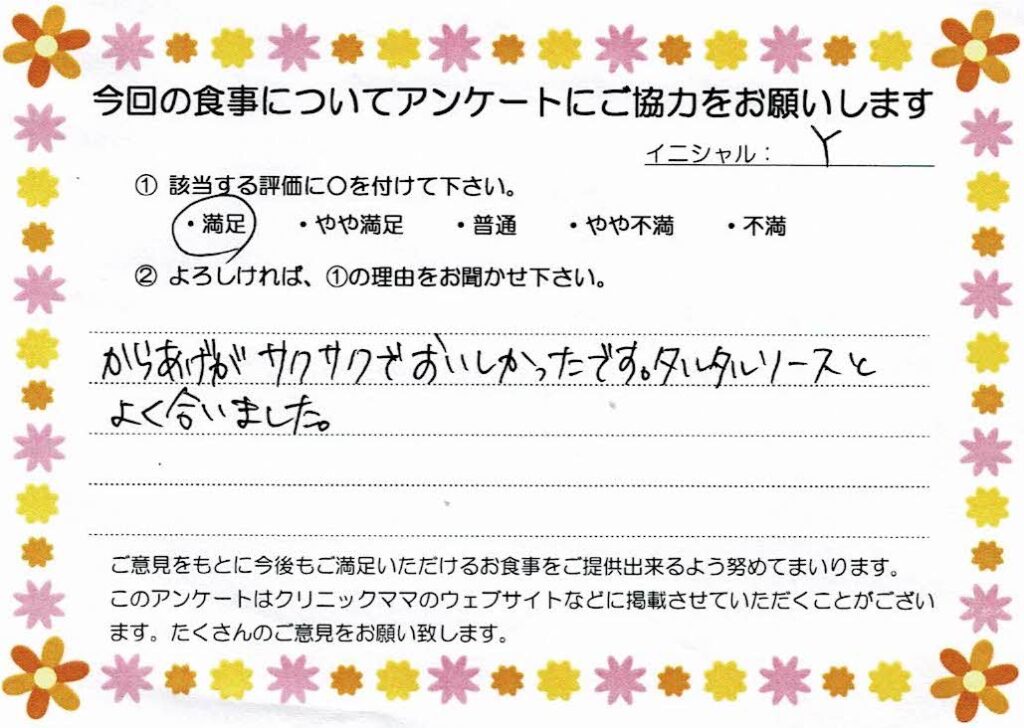 今回の食事についてアンケートにご協力をお願いします
イニシャル： Y
① 該当する評価に〇を付けて下さい。
・満足 ・やや満足 ・普通 ・やや不満 ・不満
② よろしければ、①の理由をお聞かせ下さい。
からあげがサクサクでおいしかったです。タルタルソースと
よく合いました。
ご意見をもとに今後もご満足いただけるお食事をご提供出来るよう努めてまいります。
このアンケートはクリニックママのウェブサイトなどに掲載させていただくことがござい
ます。たくさんのご意見をお願い致します。